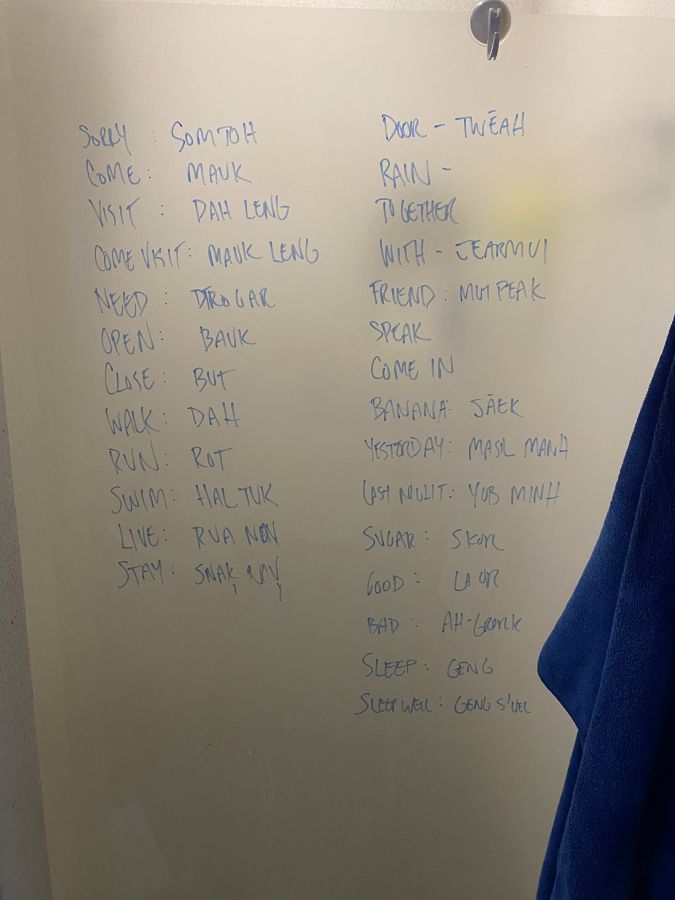 SORRY : SOMTOH
COME: MAUK
VISIT : DAH LENG
COME VISIT: MAUK LENG
NEED : DTROGAR
OPEN: BAUK
CLOSE: BUT
WALK: DAH
RUN: ROT
SWIM: HAL TUK
LIVE: RUA NOV
STAY: SNAK, NOV,
DOOR - TWĒAH
RAIN -
TOGETHER
WITH - JEARMUI
FRIEND: MUTPEAK
SPEAK
COME IN
BANANA: JĀEK
YESTORDAY: MASIL MANH
LAST NIGHT: YUB MINH
SUGAR: SKOR
GOOD : LA OR
BAD : AH-GROWK
SLEEP: GENG
SLEEP WELL: GENG S'UEL